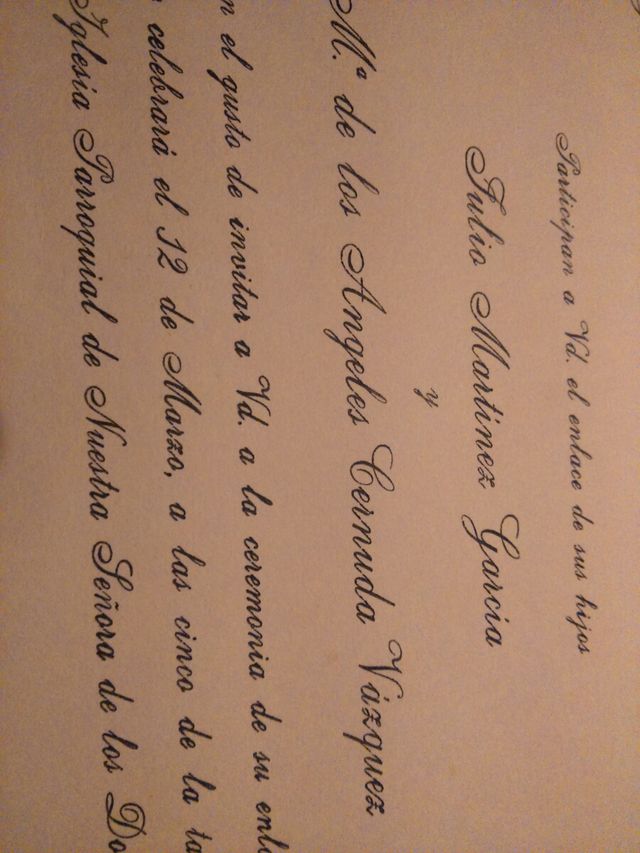 Participan a Vd. el enlace de sus hijos
Julio Martinez García
y
M.ª de los Angeles Cernuda Vázquez
el gusto de invitar a Vd. a la ceremonia de su
celebrará el 12 de Marzo, a las cinco de la
Iglesia Parroquial de Nuestra Señora de los